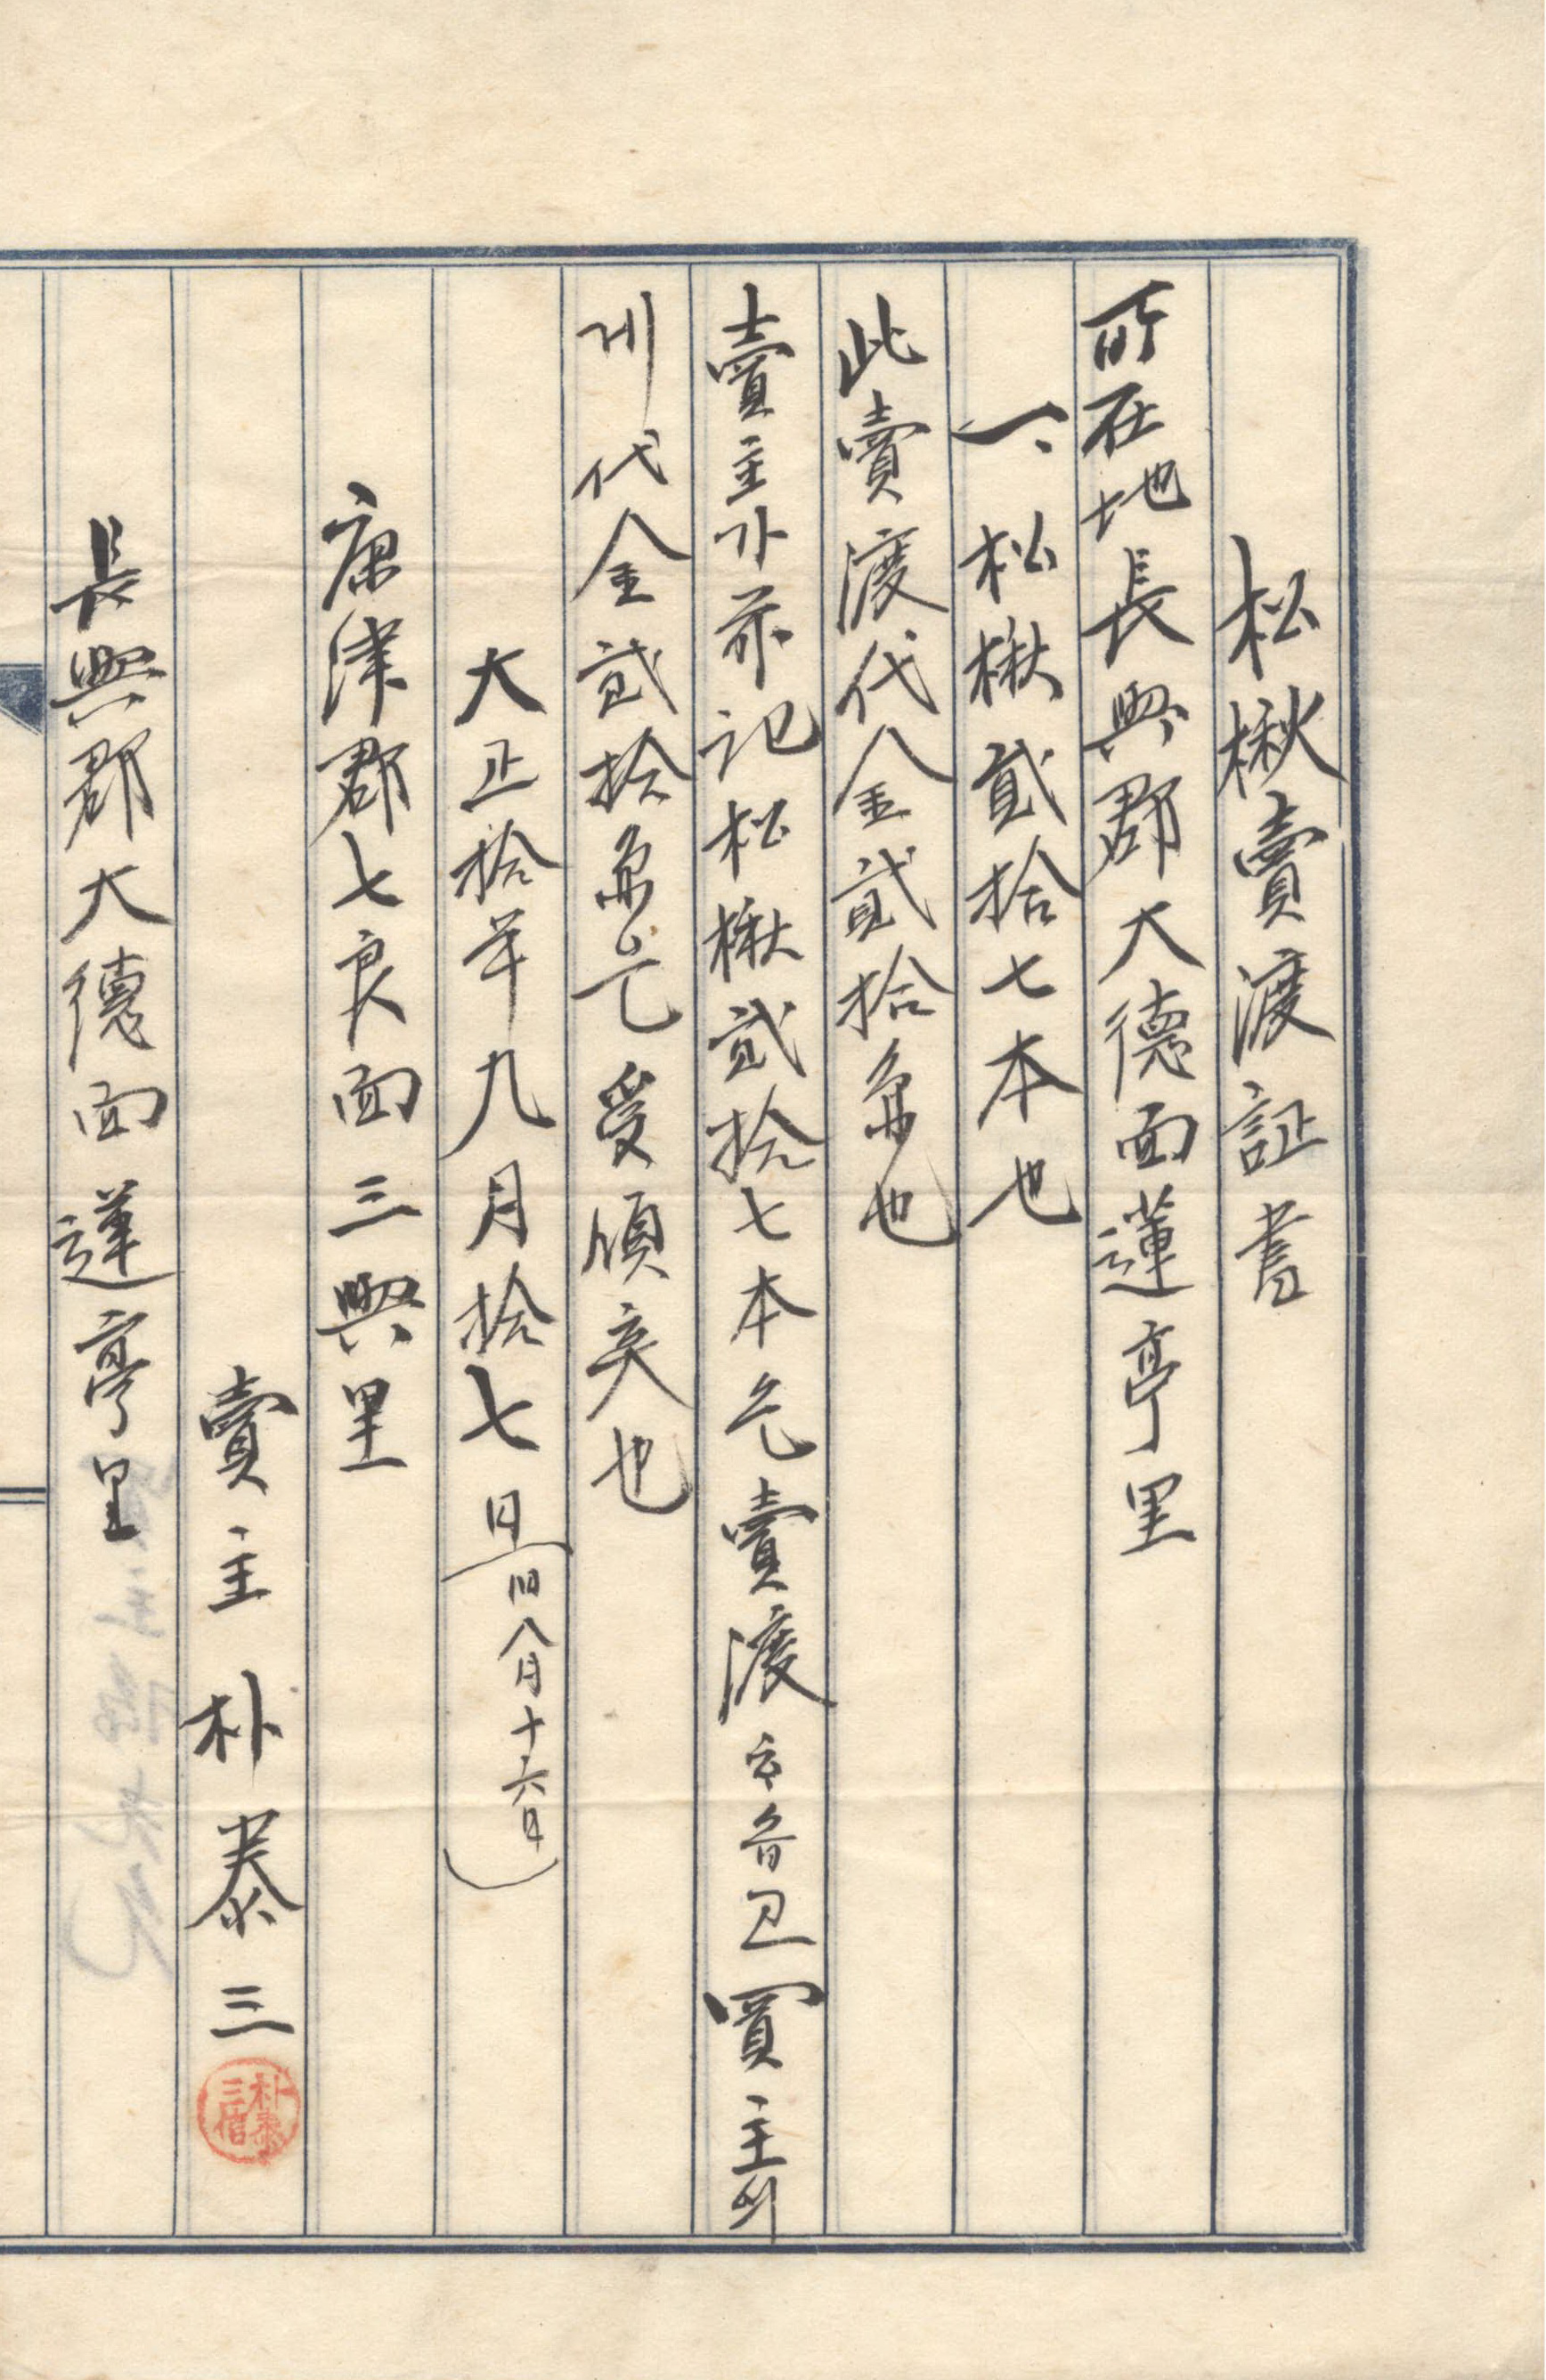 松楸賣渡証書
所在地長興郡大德面蓮亭里
一、松楸貳拾七本也
此賣渡代金貳拾也
賣主가前記松楸貳拾七本 賣渡 買主의
게代金貳拾 受領矣也
大正拾年九月拾七日(旧八月十六日)
康津郡七良面三興里
賣主 朴泰三
朴泰三信
長興郡大德面蓮亭里